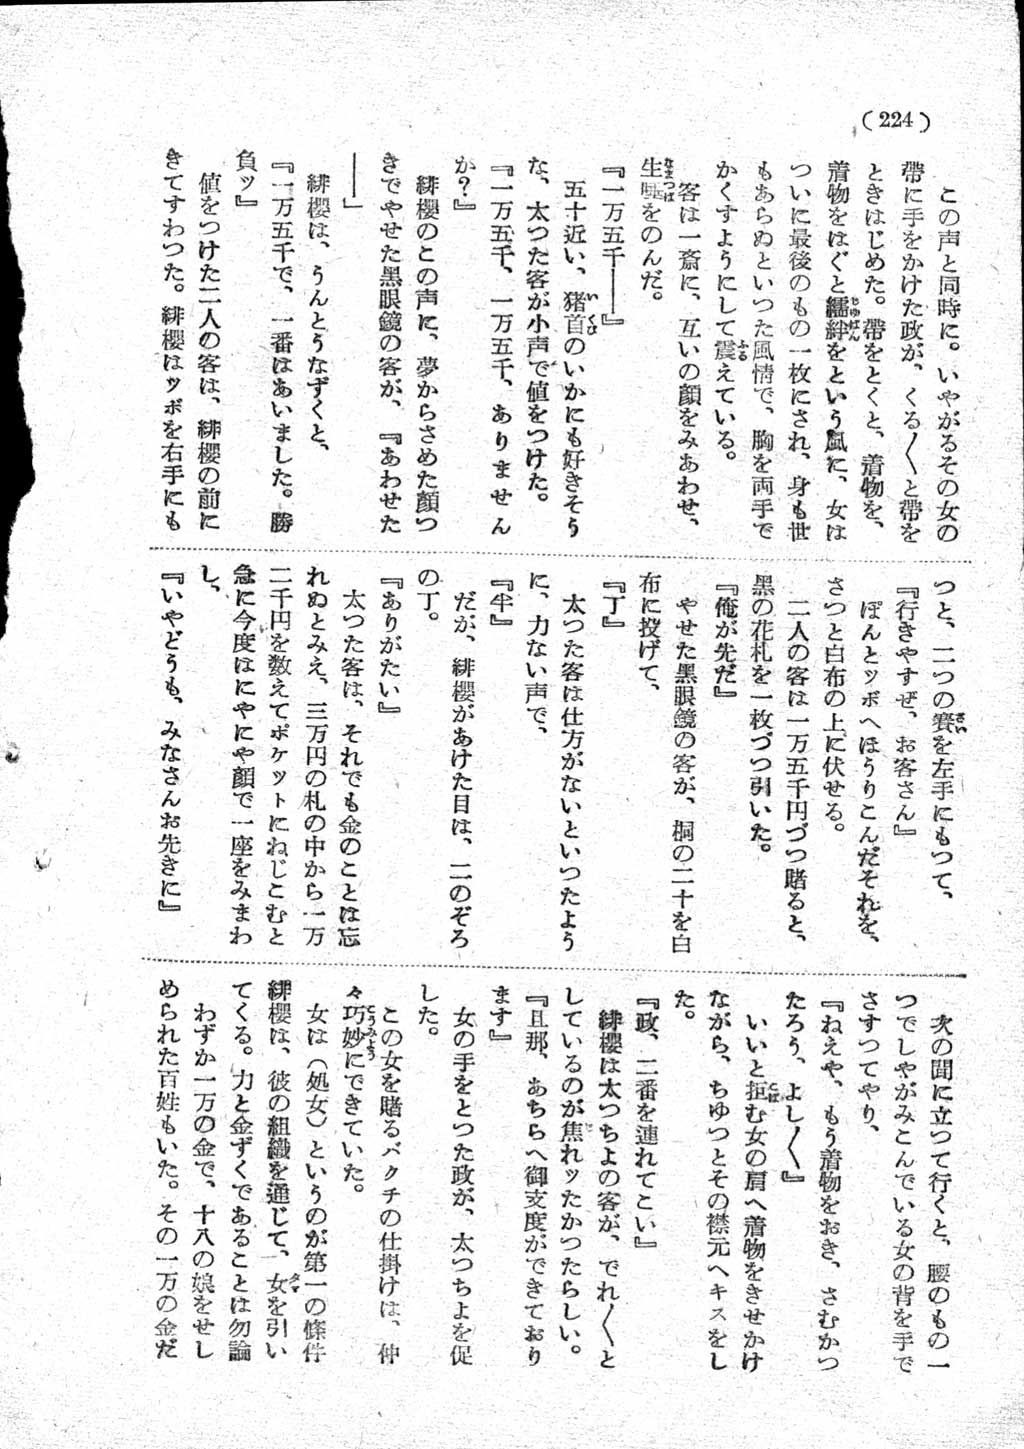 (224)
この声と同時に。いやがるその女の
帶に手をかけた政が、くる〱と帶を
ときはじめた。帶をとくと、着物を、
着物をはぐと繻絆をという風に、女は
ついに最後のもの一枚にされ、身も世
もあらぬといつた風情で、胸を両手で
かくすようにして震えている。
客は一斎に、互いの顔をみあわせ、
生唾をのんだ。
『一万五千――』
五十近い、猪首のいかにも好きそう
な、太つた客が小声で値をつけた。
『一万五千、一万五千、ありません
か？』
緋櫻のこの声に、夢からさめた顔つ
きでやせた黑眼鏡の客が、『あわせた
――」
緋櫻は、うんとうなずくと、
『一万五千で、一番はあいました。勝
負ッ』
値をつけた二人の客は、緋櫻の前に
きてすわつた。緋櫻はツボを右手にも
つと、二つの賽を左手にもつて、
『行きやすぜ、お客さん』
ぽんとツボへほうりこんだそれを、
さつと白布の上に伏せる。
二人の客は一万五千円づつ賭ると、
黑の花札を一枚づつ引いた。
『俺が先だ』
やせた黑眼鏡の客が、桐の二十を白
布に投げて、
『丁』
太つた客は仕方がないといつたよう
に、力ない声で、
『半』
だが、緋櫻があけた目は、二のぞろ
の丁。
『ありがたい』
太つた客は、それでも金のことは忘
れぬとみえ、三万円の札の中から一万
二千円を数えてポケットにねじこむと
急に今度はにやにや顔で一座をみまわ
し、
『いやどうも、みなさんお先きに』
次の間に立つて行くと、腰のもの一
つでしやがみこんでいる女の背を手で
さすつてやり、
『ねえや、もう着物をおき、さむかつ
たろう、よし〱』
いいと拒む女の肩へ着物をきせかけ
ながら、ちゆつとその襟元へキスをし
た。
『政、二番を連れてこい』
緋櫻は太つちよの客が、でれ〱と
しているのが焦れッたかつたらしい。
『旦那、あちらへ御支度ができており
ます』
女の手をとつた政が、太つちよを促
した。
この女を賭るバクチの仕掛けは、仲
々巧妙にできていた。
女は（処女）というのが第一の條件
緋櫻は、彼の組織を通じて、女を引い
てくる。力と金ずくであることは勿論
わずか一万の金で、十八の娘をせし
められた百姓もいた。その一万の金だ